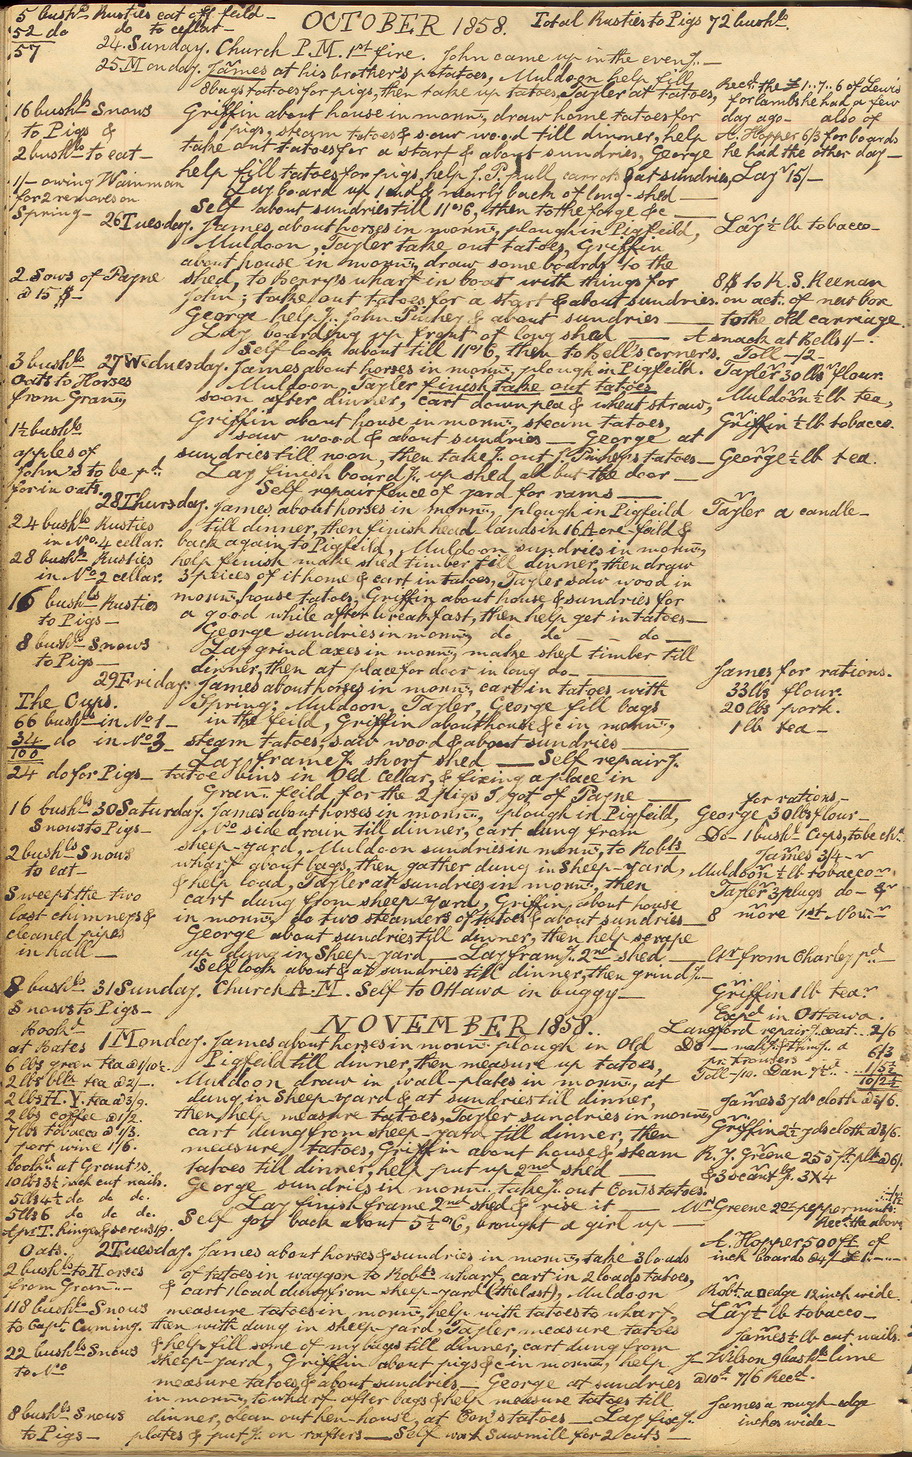 5 bushls Rusties eat off feild -
52 do do to cellar -
57
OCTOBER 1858.
Total Rusties to Pigs 72 bushls.
24. Sunday. Church P.M. 1st fire. John came up in the eveng. -
25 Monday. James at his brother's potatoes, Muldoon help fill
8 bags tatoes for pigs, then take up tatoes, Tayler at tatoes,
Griffin about house in mornng, draw home tatoes for
pigs, steam tatoes & saw wood till dinner, help
take out tatoes for a start & about sundries, George
help fill tatoes for pigs, help J. P. pull carrots & at sundries,
Lay board up end & nearly back of long-shed -
Self about sundries till 11 o'c, then to the forge &c -
Recd. the £1..7..6 of Lewis
for lambs he had a few
day ago - also of
A. Hopper 6/3 for boards
he had the other day -
Lay 15/-
16 bushls Snows
to Pigs &
2 bushls to eat -
1/- owing Wainman
for 2 removes on
Spring -
26 Tuesday. James, about horses in mornng, plough in Pigfeild,
Muldoon, Tayler take out tatoes, Griffin
about house in mornng, draw some boards to the
shed, to Berry's wharf in boat with things for
John; take out tatoes for a start & about sundries.
George help J. John Pushey & about sundries -
Lay boarding up front of long shed -
Self look about till 11 o'c, then to Bell's corners.
Lay ½ lb tobacco -
8$ to R. S. Keenan
on act. of new box
to the old carriage.
A snack at Bells 1/-
Toll -/2 -
2 Sows of Payne
@ 15$ -
27 Wednesday. James about horses in mornng, plough in Pigfeild.
Muldoon, Tayler finish take out tatoes
soon after dinner, cart down pea & wheat straw,
Griffin about house in mornng, steam tatoes,
saw wood & about sundries - George at
sundries till noon, then takeg. out J. Pushey's tatoes -
Lay finish boardg. up shed, all but the door -
Self repair fence of yard for rams -
Tayler 30 lbs flour.
Muldoon ½ lb tea,
Griffin ½ lb tobacco.
George ½ lb tea.
3 bushls
Oats to Horses
from Granny
1½ bushls
apples of
John's to be pd.
for in oats.
28 Thursday. James, about horses in mornng, plough in Pigfeild
till dinner, then finish head lands in 16 Acre feild &
back again to Pigfeild, Muldoon sundries in mornng,
help finish make shed timber till dinner, then draw
3 peices of it home & cart in tatoes, Tayler saw wood in
mornng, house tatoes, Griffin about house & sundries for
a good while after breakfast, then help get in tatoes -
George sundries in mornng, do do - - do -
Lay grind axes in mornng, make shed timber till
dinner, then at place for door in long do -
Tayler a candle -
24 bushls Rusties
in No. 4 cellar.
28 bushls Rusties
in No 2 cellar.
16 bushls Rusties
to Pigs -
8 bushls Snows
to Pigs -
29 Friday. James about horses in mornng, cart in tatoes with
Spring; Muldoon, Tayler, George fill bags
in the feild, Griffin about house &c in mornng,
steam tatoes, saw wood & about sundries -
Lay frameg. short shed - Self repairg.
tatoe bins in Old Cellar, & fixing a place in
Grann. feild for the 2 pigs I got of Payne -
James for rations.
33 lbs flour.
20 lbs pork.
1 lb tea -
The Cups.
66 bushls in No 1 -
34 do in No 3 -
100
24 do for Pigs -
30 Saturday. James about horses in mornng, plough in Pigfeild,
No side drain till dinner, cart dung from
sheep-yard, Muldoon sundries in mornng, to Robts
wharf about bags, then gather dung in Sheep-yard,
& help load, Tayler at sundries in mornng, then
cart dung from sheep-yard, Griffin, about house
in mornng, do two steamers of tatoes & about sundries -
George about sundries till dinner, then help scrape
up dung in Sheep-yard - Lay frameg. 2nd shed -
Self look about & at sundries till dinner, then grindg. -
for rations, -
George 30 lbs flour -
Do - 1 bushl Cups, to be chd.
James 3/4 -
Muldoon ½ lb tobacco
Tayler 3 plugs do - &
8 more 1st Novr
from Charley pd -
16 bushls
Snows to Pigs -
2 bushls Snows
to eat -
Sweept the two
last chimneys &
cleaned pipes
in hall -
8 bushls
Snows to Pigs -
31 Sunday. Church A.M. Self to Ottawa in buggy -
Griffin 1 lb tea
Expd in Ottawa.
NOVEMBER 1858.
Langford repairg. coat .. 2/6
Do - makg. thing. a
pr. trousers - - 6/3
Toll -/10. Dan 7½ .. 1/5½
10/2½
1 Monday. James about horses in mornng, plough in Old
Pigfeild till dinner, then measure up tatoes,
Muldoon draw in wall-plates in mornng, at
dung in Sheep-yard & at sundries till dinner,
then help measure tatoes, Tayler sundries in mornng,
cart dung from sheep-yard till dinner, then
measure tatoes, Griffin about house & steam
tatoes till dinner, help put up 2nd shed -
George sundries in mornng, takeg. out Con's tatoes.
Lay finish frame 2nd shed & rise it -
Self got back about 5½ o'c, brought a girl up -
James 3 yds cloth @ 2/6.
Griffin 2½ yds cloth @ 3/6.
R. J. Greene 255 ft. plk @ 6/.
& 3 scantg. 3X4
Mr Greene 2 oz peppermint.
Recd. the above
Bookd
at Bates
6 lbs gran tea @ 1/10½
2 lbs blk tea @ 2/-
2 lbs H.Y. tea @ 3/9.
2 lbs coffee @ 1/2.
7 lbs tobacco @ 1/3.
Port wine 1/6.
bookd at Grant's.
10 lbs 3½ inch cut nails.
5 lbs 4½ do do do.
5 lbs 6 do do do.
A pr T. hinges & screws 1/9.
2 Tuesday. James about horses & sundries in mornng, take 3 loads
of tatoes in waggon to Robts wharf, cart in 2 loads tatoes,
& cart 1 load dung from sheep-yard (the last), Muldoon
measure tatoes in mornng, help with tatoes to wharf,
then with dung in sheep-yard, Tayler measure tatoes
& help fill some of my bags till dinner, cart dung from
sheep-yard, Griffin about pigs &c in mornng, help
measure tatoes & about sundries - George at sundries
in mornng, to wharf after bags & help measure tatoes till
dinner, clean out hen-house, at Con's tatoes - Lay fixg.
plates & putg. on rafters - Self work Sawmill for 2 cuts -
A. Hopper 500 ft of
inch boards @ 4/
Robt. a edge 12 inch wide.
Lay 1 lb tobacco -
James ½ lb cut nails.
J. Wilson 9 bushls lime
@ 10d. 7/6 Recd.
James a rough-edge
inches wide -
Oats.
2 bushls to Horses
from Grann -
118 bushls Snows
to Capt. Cuming.
22 bushls Snows
to No
8 bushls Snows
to Pigs -